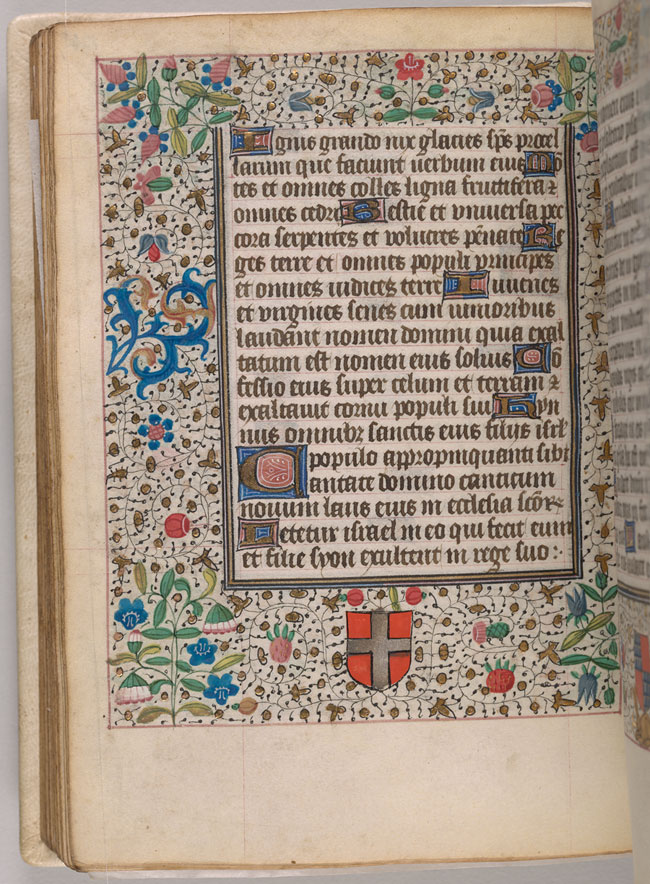 Ignis grando nix glacies sp̄s procel
larum que faciunt uerbum eius Mō
tes et omnes colles ligna fructifera ⁊
omnes cedri Bestie et vniuersa pe
cora serpentes et volucres pēnate Re
ges terre et omnes populi principes
et omnes iudices terre Iuuenes
et virgines senes cum iunioribus
laudant nomen domini quia exal
tatum est nomen eius solius Cō
fessio eius super celum et terram ⁊
exaltauit cornu populi sui Hym
nus omnibꝫ sanctis eius filijs isrl̄
populo appropinquanti sibi
Cantate domino canticum
nouum laus eius in ecclesia scōꝝ
Letetur israel in eo qui fecit eum
et filie syon exultent in rege suo :